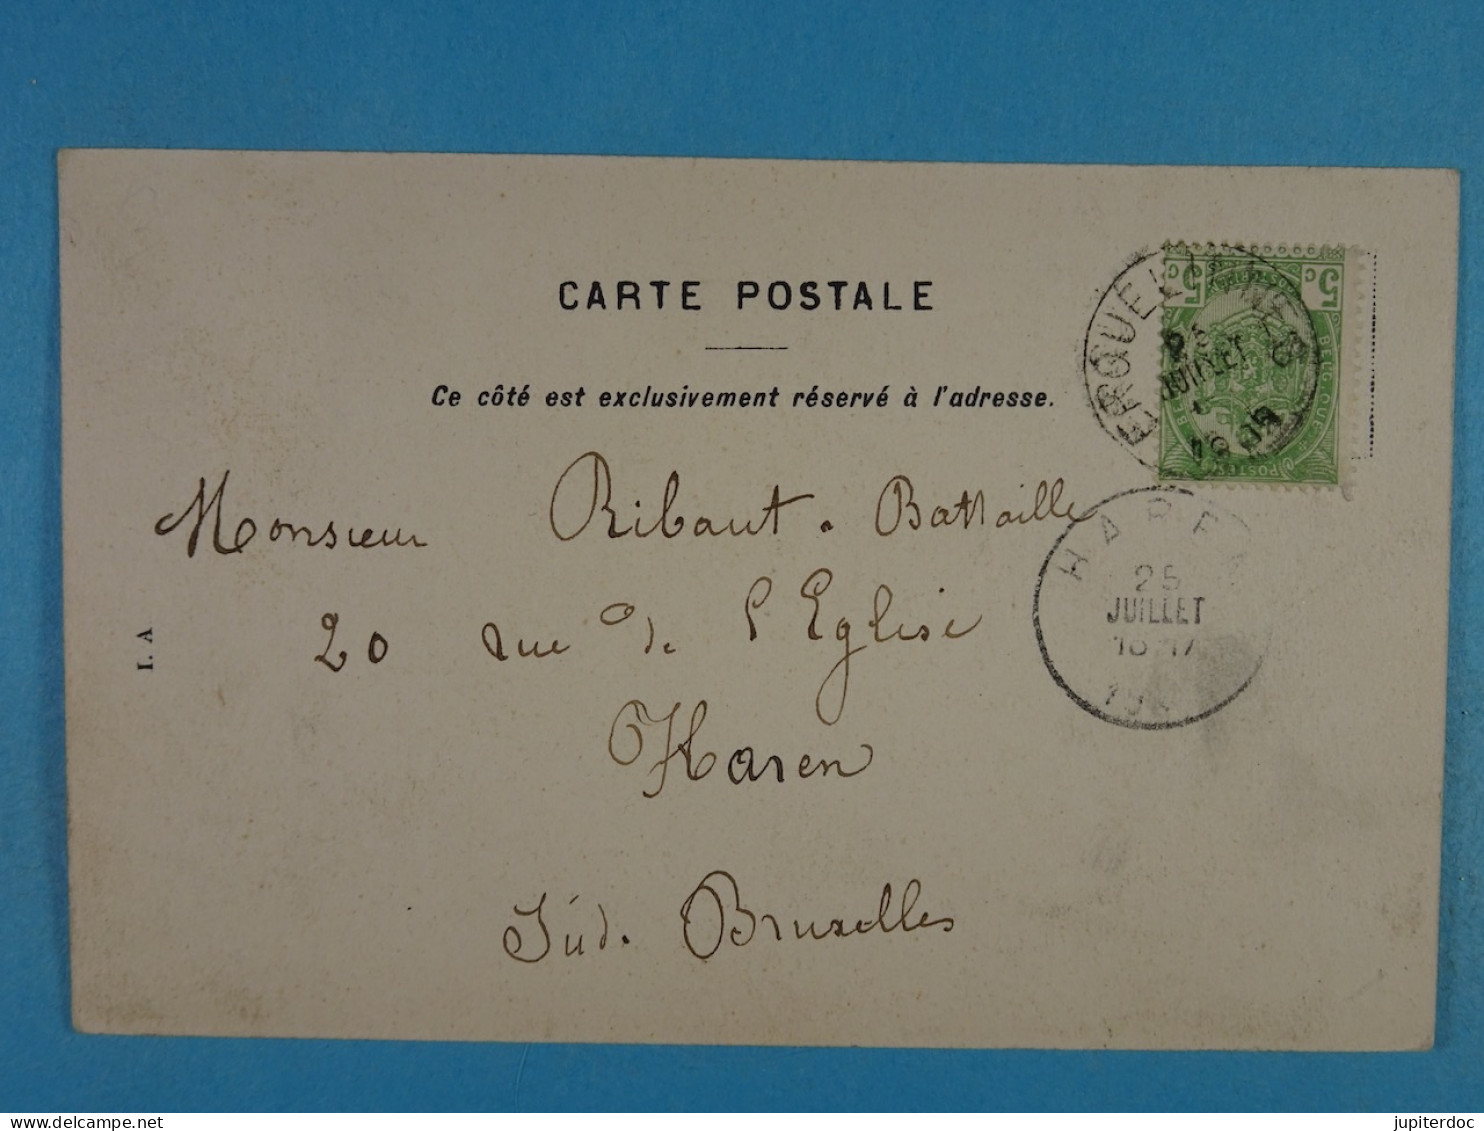 CARTE POSTALE
Ce côté est exclusivement réservé à l'adresse.
5c 5c
BELGIQUE
POSTES
ERQUELINNES
JUILLET
HAREN
25
JUILLET
Monsieur Ribaut. Battaille
20 rue de l'Eglise
Haren
Sud. Bruxelles
I. A
jupiterdoc